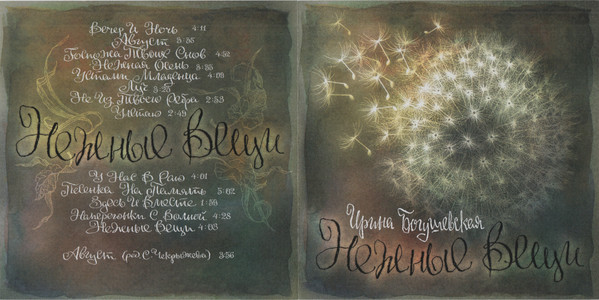 Вечер И Ночь 4:11
Август 3:36
Госпожа Твоих Снов 4:52
Нежная Осень 3:55
Устами Младенца 4:09
Луч 3:23
Не Из Твоего Ребра 2:53
2:49
Нежные Вещи
У Нас В Раю 4:01
Песенка На Память 3:02
Здесь И Вместе 1:50
Наперегонки С Волной 4:28
Нежные Вещи 4:03
Август 3:56
Ирина Богушевская
Нежные Вещи